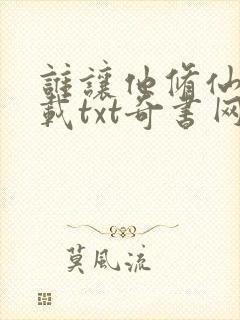 誰讓他脩仙
載txt奇書网
莫風流